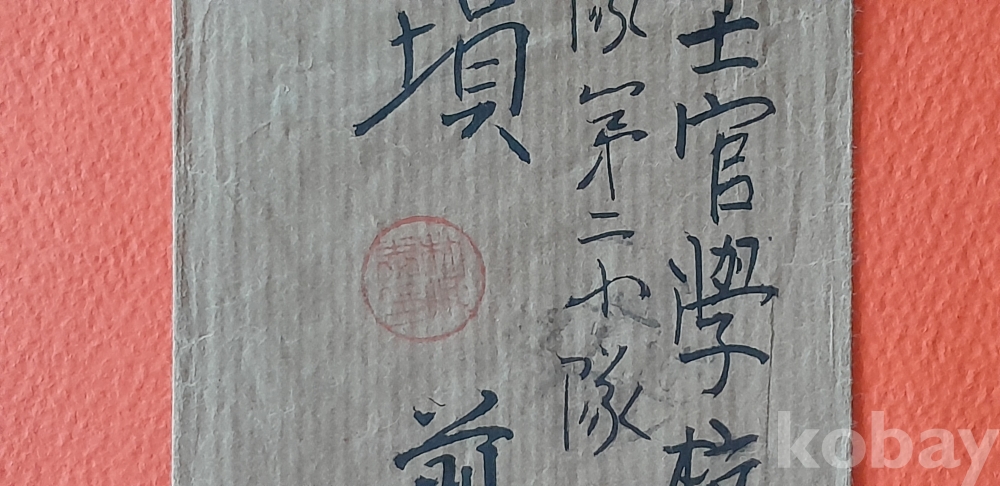 士官學校
隊第二小隊
塤 前
kobay